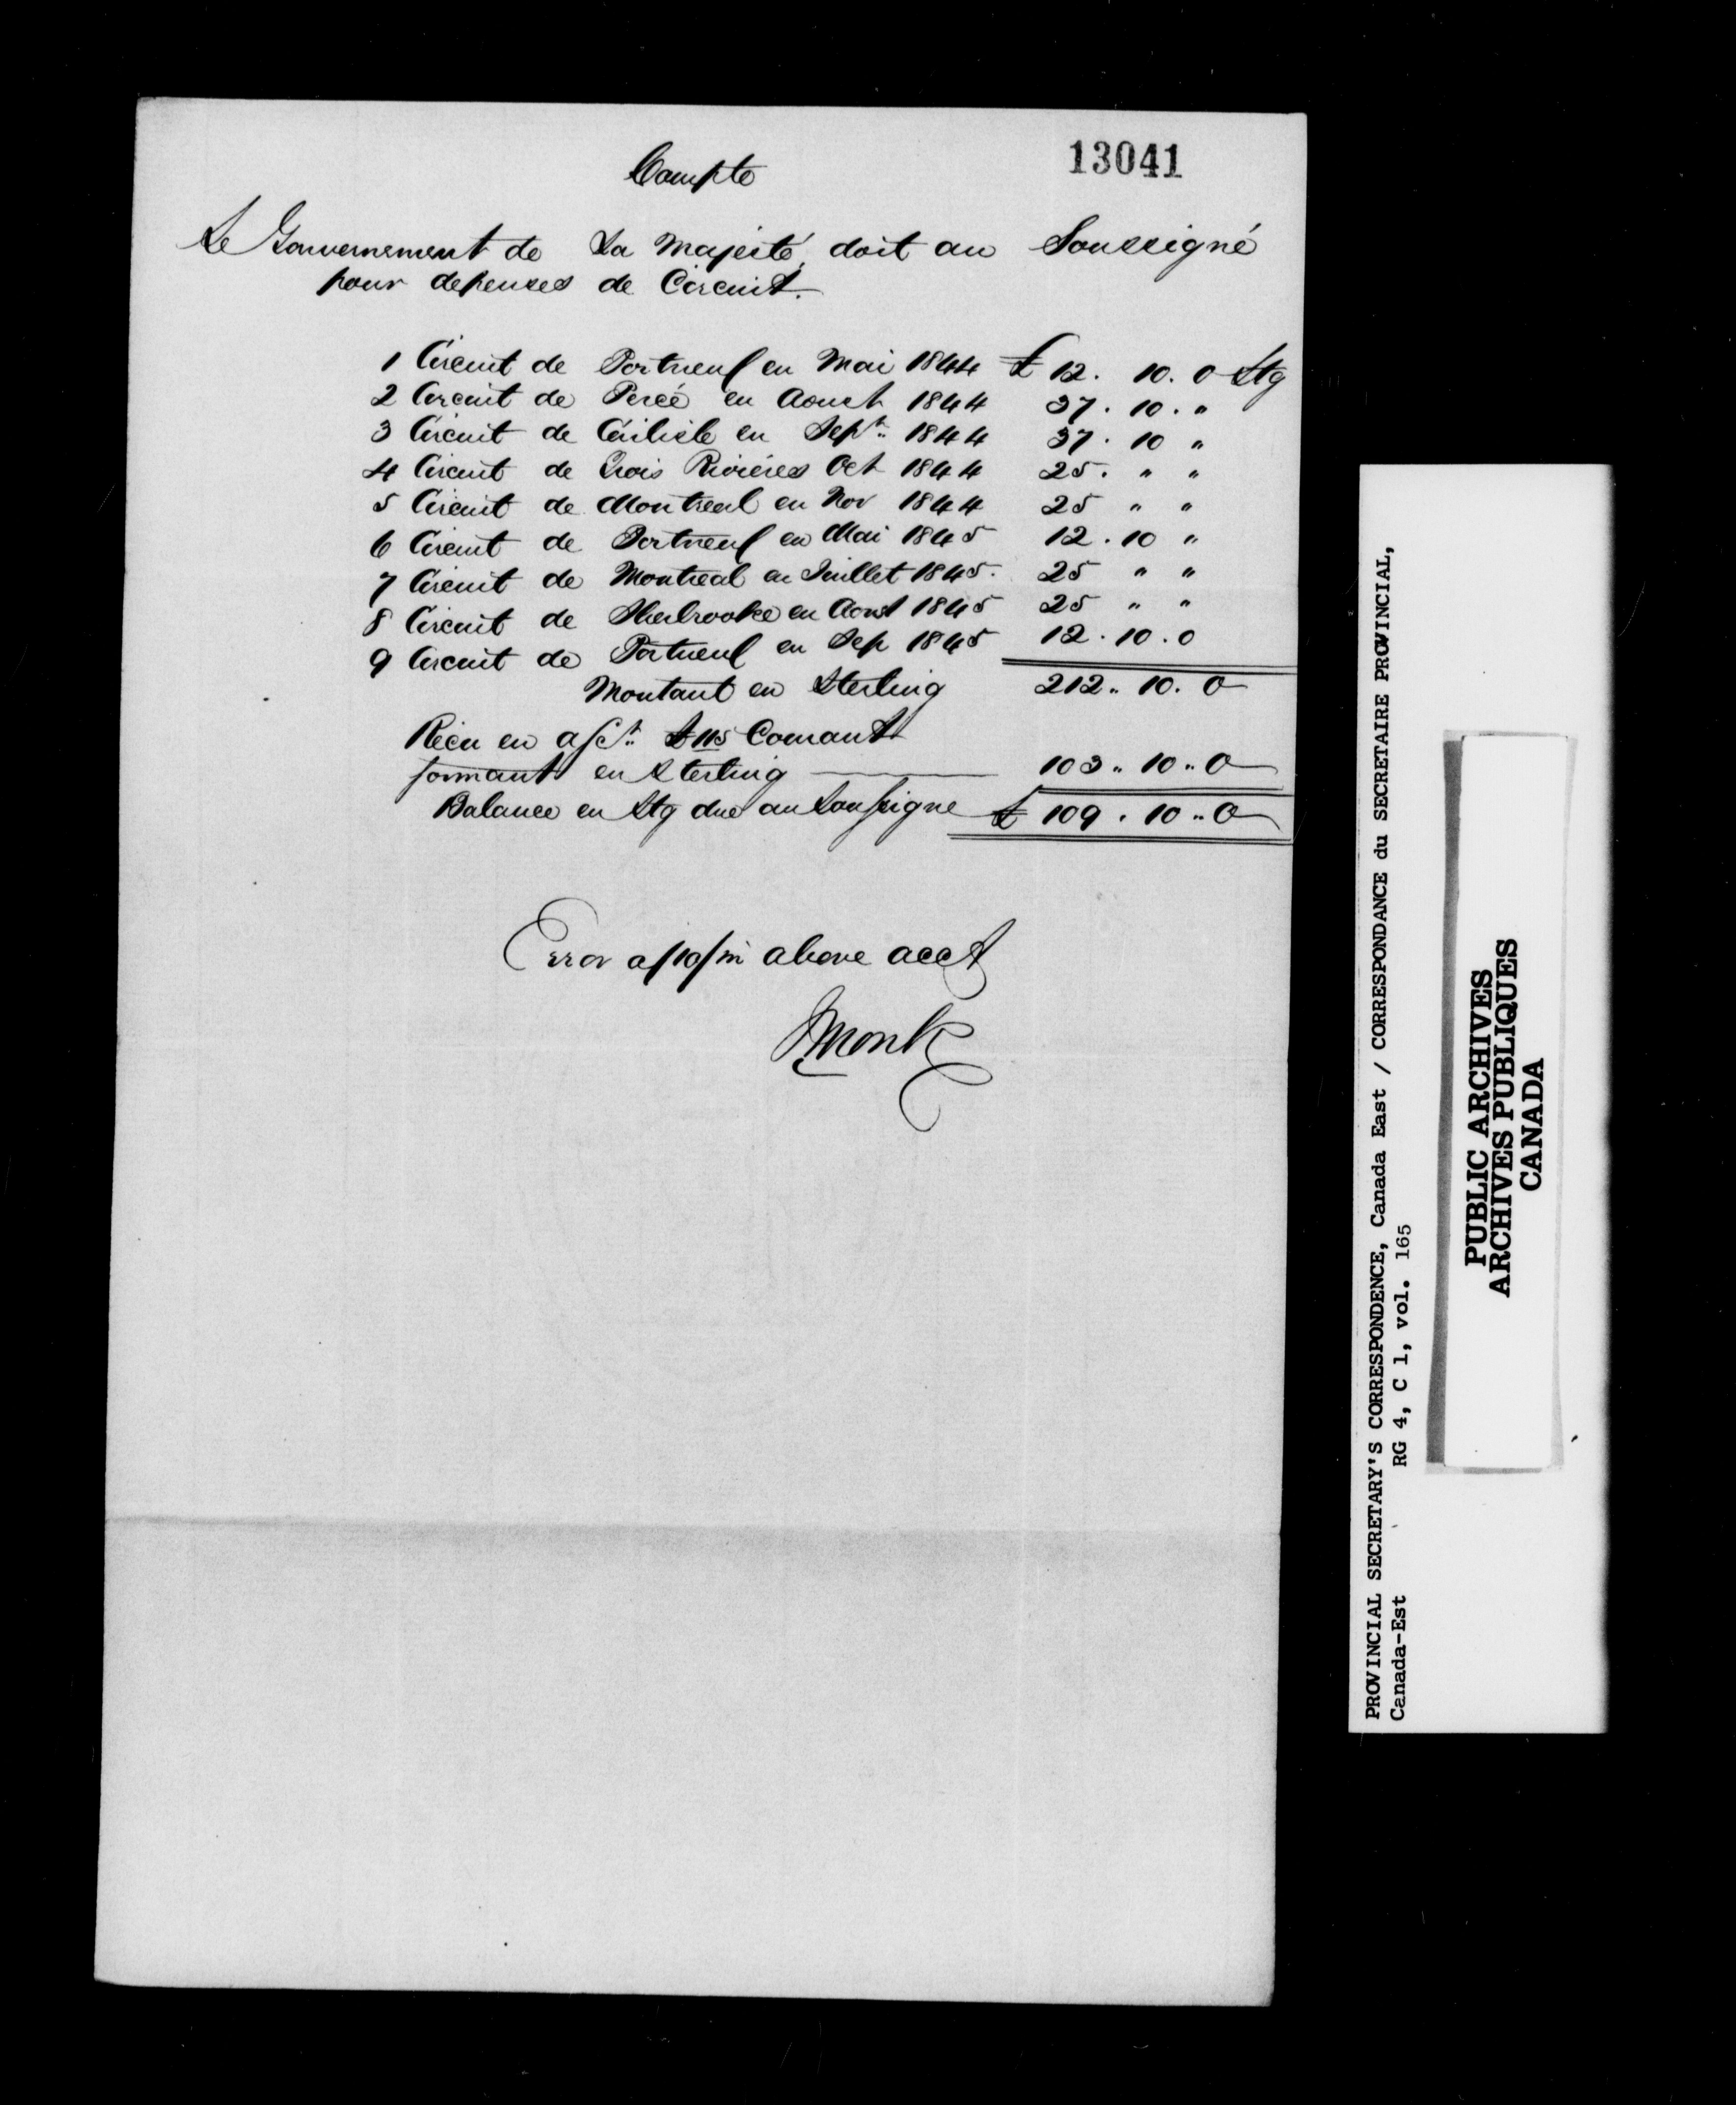 13041
Compte
Le Gouvernement de Sa Majesté, doit au Soussigné
pour depenses de Circuit.
1 Circuit de Portneuf en Mai 1844 £ 12. 10. 0 Stg
2 Circuit de Percé en Aoust 1844 37. 10. "
3 Circuit de Carlisle en Sept. 1844 37. 10 "
4 Circuit de Trois Rivières Oct 1844 25. " "
5 Circuit de Montreal en Nov 1844 25 " "
6 Circuit de Portneuf en Mai 1845 12. 10 "
7 Circuit de Montreal en Juillet 1845. 25 " "
8 Circuit de Sherbrooke en Aoust 1845 25 " "
9 Circuit de Portneuf en Sep 1845 12. 10. 0
Montant en Sterling 212.. 10. 0
Récu en a/ct. £115 Courant
formant en Sterling 103.. 10.. 0
Balance en Stg due au Soussigne £ 109. 10.. 0
Error of 10/ in above acct
Monk
PROVINCIAL SECRETARY'S CORRESPONDENCE, Canada East / CORRESPONDANCE du SECRETAIRE PROVINCIAL,
Canada-Est RG 4, C 1, vol. 165
PUBLIC ARCHIVES
ARCHIVES PUBLIQUES
CANADA